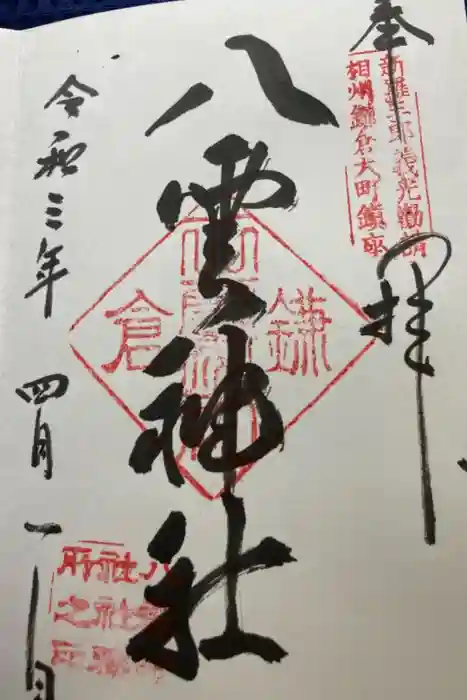 奉拝
新羅三郎義光勧請
相州鎌倉大町鎮座
八雲神社
鎌倉
八雲
社社務
所之印
令和三年四月一日